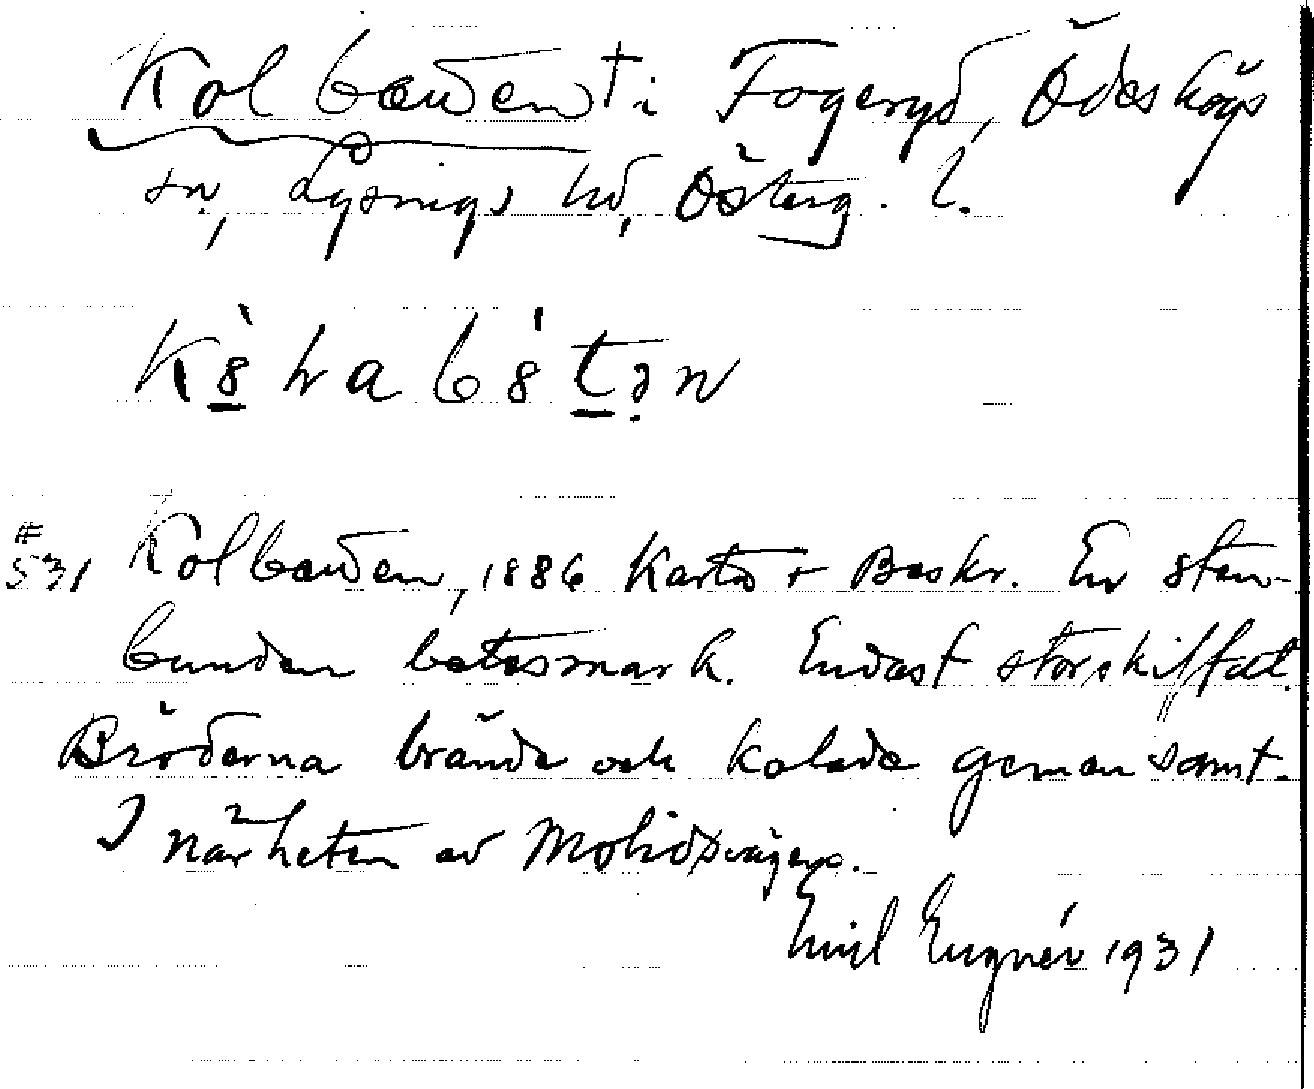 Kolbauden † i Fogeryd, Ödeshögs
sn, Lysings hd, Österg. l.
# 531 Kolbauden, 1886 Karta + Beskr. En sten-
bunden betesmark. Endast storskiftat.
Bröderna brände och kolade gemensamt.
I närheten av
Emil 1931